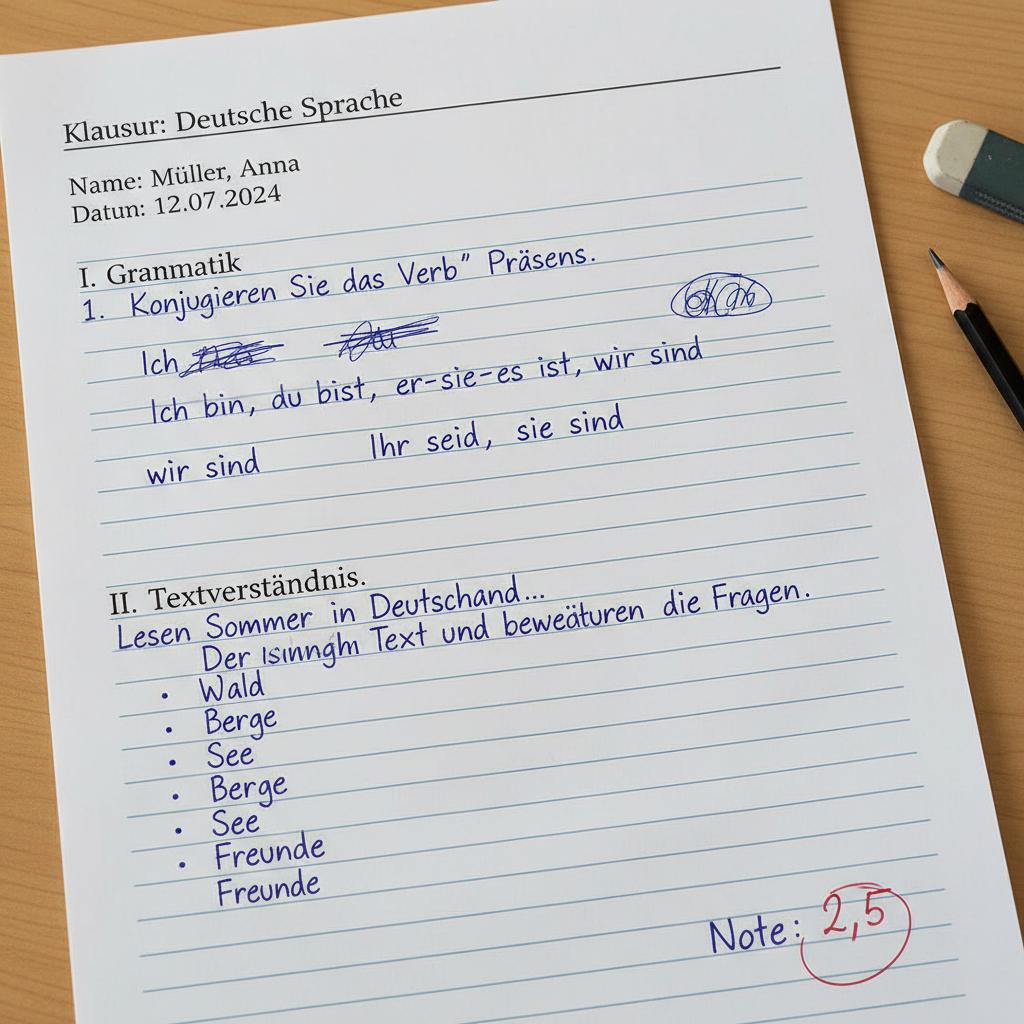 Klausur: Deutsche Sprache
Name: Müller, Anna
Datun: 12.07.2024
I. Granmatik
1. Konjugieren Sie das Verb” Präsens.
Ich
Ich bin, du bist, er-sie-es ist, wir sind
wir sind Ihr seid, sie sind
II. Textverständnis.
Lesen Sommer in Deutschand...
Der Text und beweäturen die Fragen.
• Wald
• Berge
• See
• Berge
• See
• Freunde
Freunde
Note: 2,5